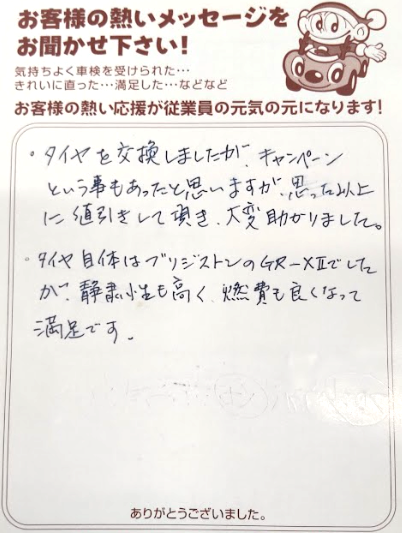 お客様の熱いメッセージを
お聞かせ下さい!
気持ちよく車検を受けられた…
きれいに直った…満足した…などなど
お客様の熱い応援が従業員の元気の元になります!
・タイヤを交換しましたが、キャンペーン
という事もあったと思いますが、思った以上
に値引きして頂き、大変助かりました。
・タイヤ自体はブリジストンのGR-XⅡでした
が、静粛性も高く、燃費も良くなって
満足です。
ありがとうございました。